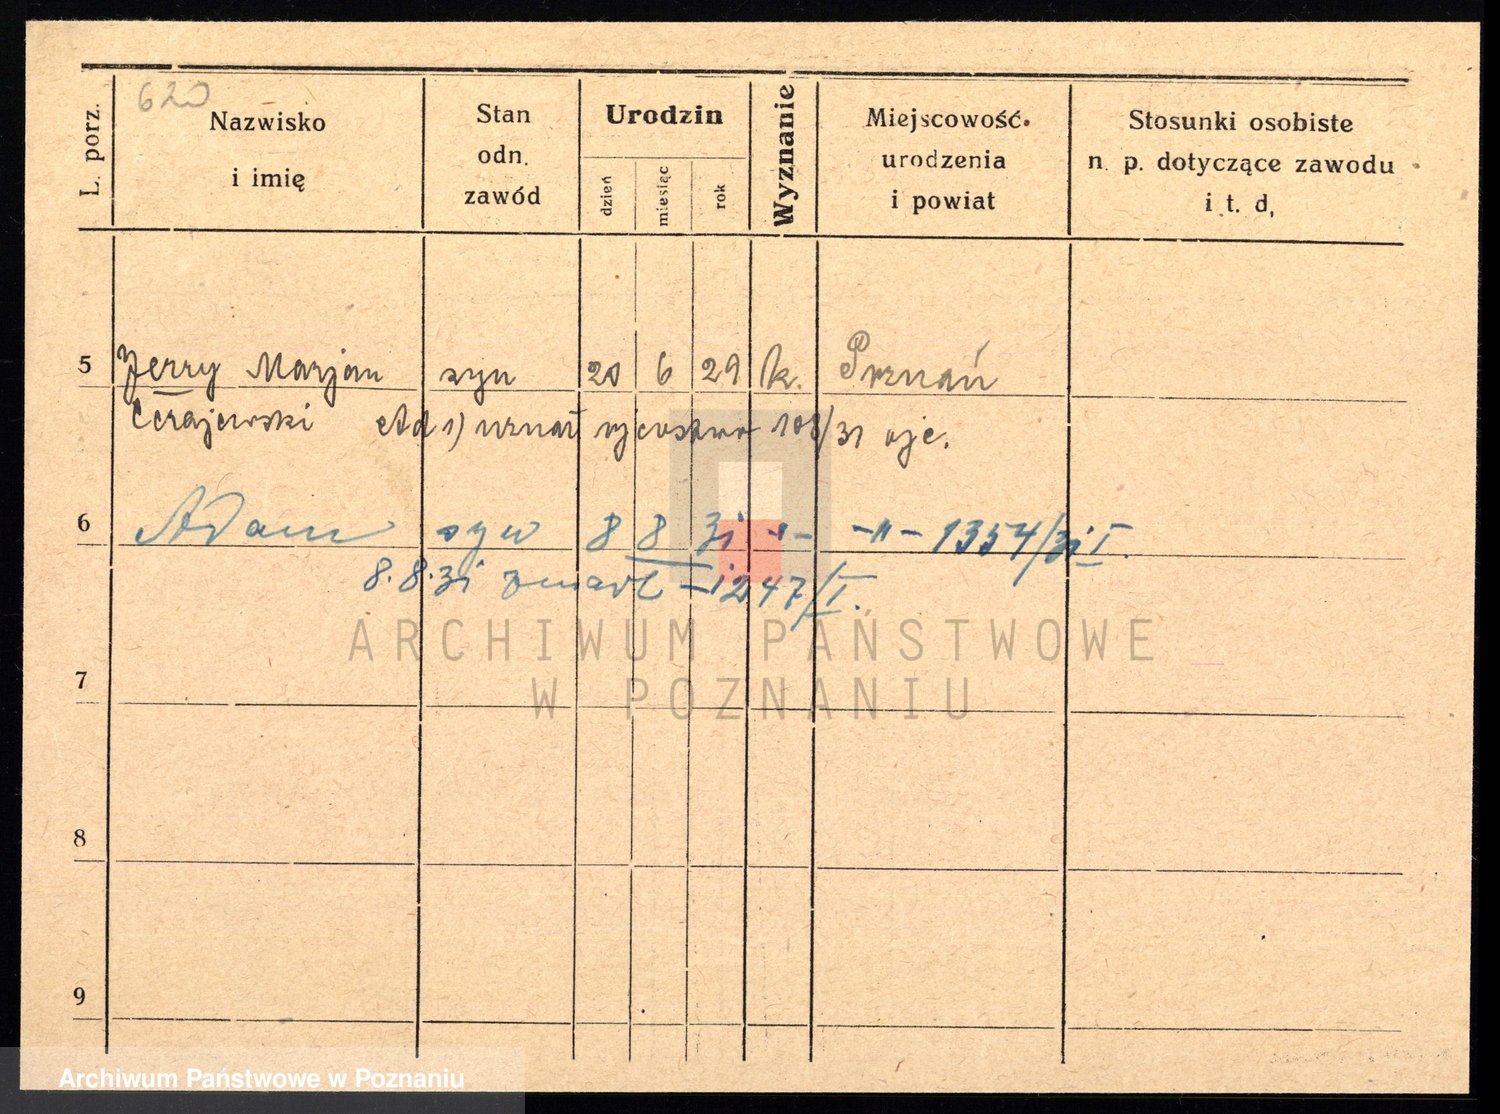 620
L. porz. Nazwisko i imię Stan odn. zawód Urodzin dzień miesiąc rok Wyznanie Miejscowość urodzenia i powiat Stosunki osobiste n. p. dotyczące zawodu i t. d,
5 Jerzy Marjan syn 20 6 29 rk. Poznań
Czajewski Ad 1) uznał ojcostwo 108/31 ojc.
6 Adam syn 8 8 31 -"- -"- 1354/31 I.
8.8.31 zmarł - 1247/I.
ARCHIWUM PAŃSTWOWE
W POZNANIU
7
8
9
Archiwum Państwowe w Poznaniu